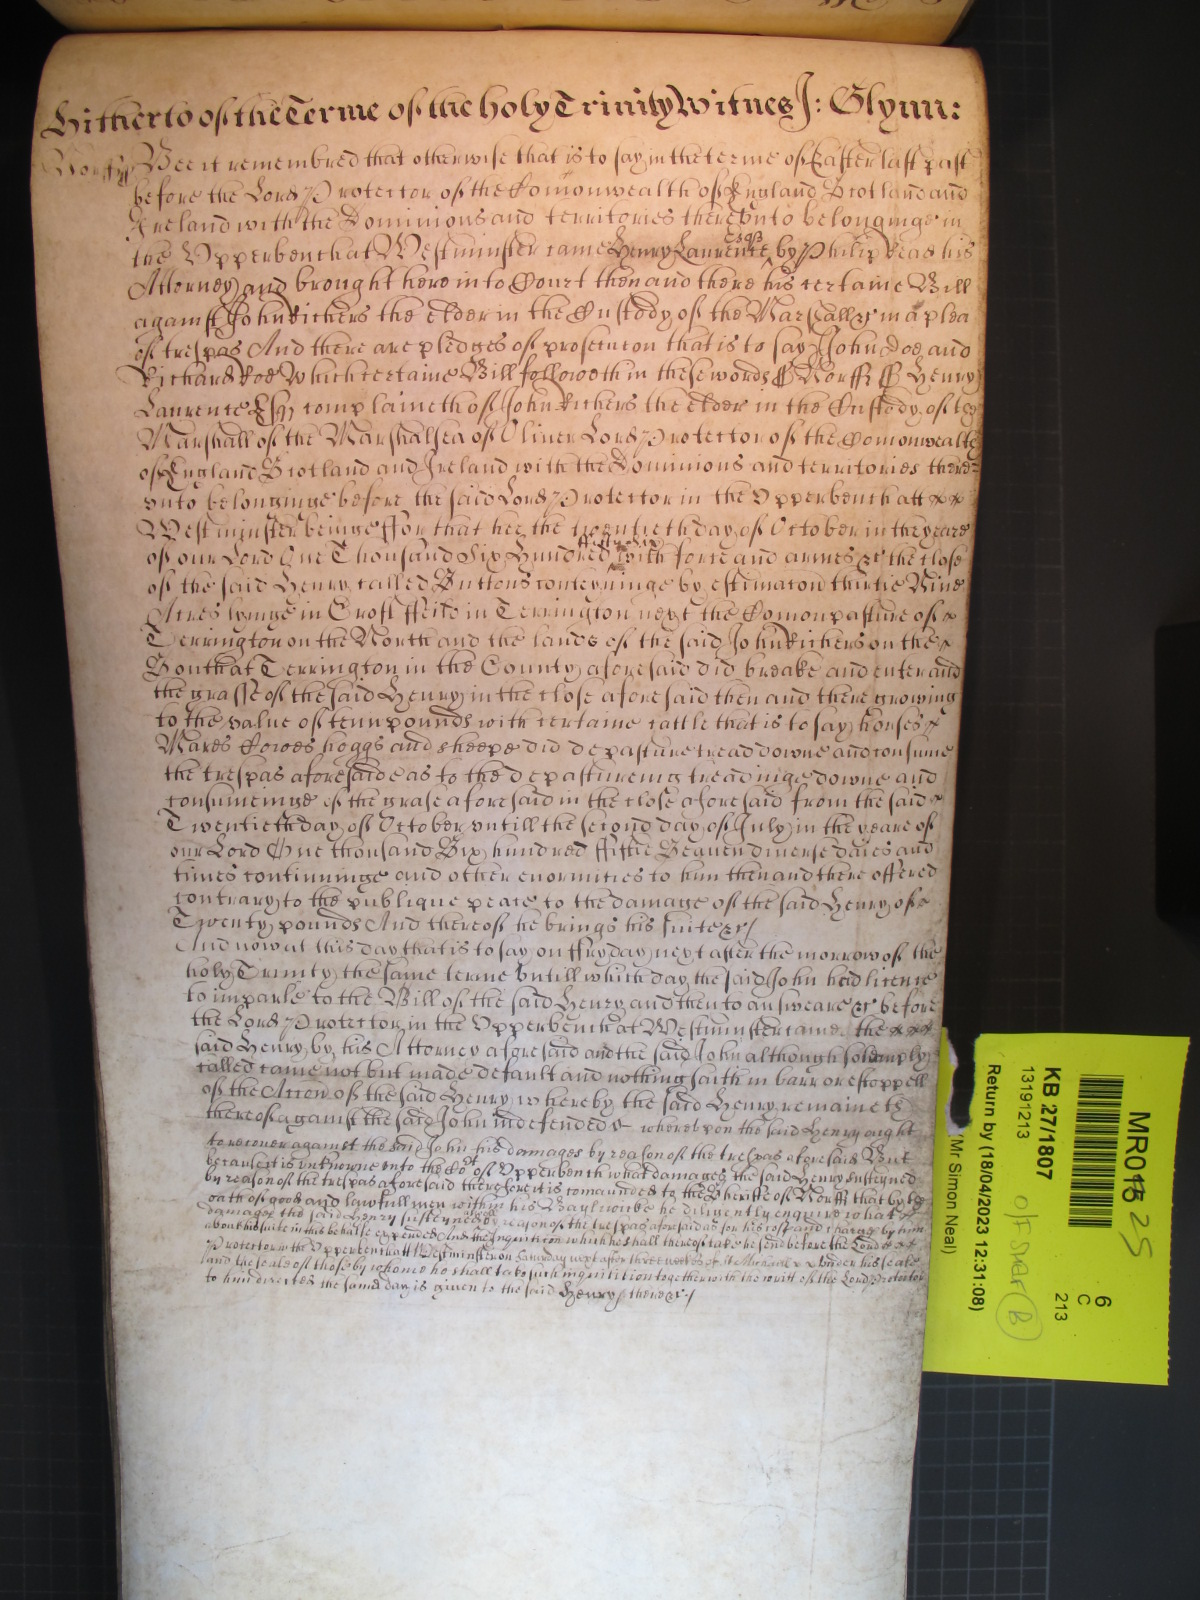 Hitherto of the Terme of the holy Trinity Witnes J: Glynn:
Norff ss Bee it remembred that otherwise that is to say in the terme of Easter last past
before the Lord Protector of the Comonwealth of England Scotland and
Ireland with the Dominions and territories thereunto belonginge in
the Upperbench at Westminster came Henry Laurence Esqr by Philip Read his
Attorney and brought here into Court then and there his certaine Bill
against John Kickers the elder in the Custody of the Marshall &c in a plea
of trespas And there are pledges of prosecucon that is to say John Doe and
Richard Roe Which certaine Bill followeth in these words Norff ss Henry
Laurence Esqr complaineth of John Kickers the elder in the Custody of the
Marshall of the Marshalsea of Oliver Lord Protector of the Comonwealth
of England Scotland and Ireland with the Dominions and territories there=
unto belonginge before the said Lord Protector in the Upperbench att
Westminster beinge ffor that hee the twentieth day of October in the yeare
of our Lord One Thousand Six Hundred with force and armes &c the close
of the said Henry called Buttons conteyninge by estimacon thirtie Nine
Acres lyinge in Croft ffeild in Terrington next the Comon pasture of
Terrington on the North and the lands of the said John Kickers on the
South at Terrington in the County aforesaid did breake and enter and
the grasse of the said Henry in the close aforesaid then and there growing
to the value of tenn pounds with certaine cattle that is to say horses
Mares Cowes hoggs and sheepe did depasture tread downe and consume
the trespas aforesaide as to the depastureing treadinge downe and
consumeinge of the grase aforesaid in the close aforesaid from the said
Twentieth day of October untill the second day of July in the yeare of
our Lord One thousand Six hundred ffiftie Seaven diverse daies and
times continuinge and other enormities to him then and there offered
contrary to the publique peace to the damage of the said Henry of
Twenty pounds And thereof he brings his suite &c/
And now at this day that is to say on ffryday next after the morrow of the
holy Trinity the same terme Untill which day the said John had licence
to imparle to the Bill of the said Henry and then to answeare &c before
the Lord Protector in the Upperbench at Westminster came the
said Henry by his Attorney aforesaid and the said John although solemply
called came not but made default and nothing saith in barr or estoppell
of the Accon of the said Henry whereby the said Henry remaineth
thereof against the said John undefended &c whereupon the said Henry ought
to recover against the said John his damages by reason of the trespas aforesaid But
because it is unknowne unto the Cort of Upperbench what damages the said Henry susteyned
by reason of the trespas aforesaid therefore it is comaunded to the Sheriffe of Norff that by the
oath of good and lawfull men within his Baylywicke he diligently enquire what
damages the said Henry susteyned by reason of the trespas aforesaid as for his cost and charges by him
about his suite in this behalfe expended And the Inquisition which he shall thereof take he send before the Lord
Protector in the Upperbench att Westminster on Saturday next after three weekes of St Michaell under his seale
and the seales of those by whome he shall take such inquisition together with the writt of the Lord Protector
to him directed the same day is given to the said Henry there &c/
MR018 25
6
C
213
KB 27/1807
13191213
Return by (18/04/2023 12:31:08)
(Mr Simon Neal)